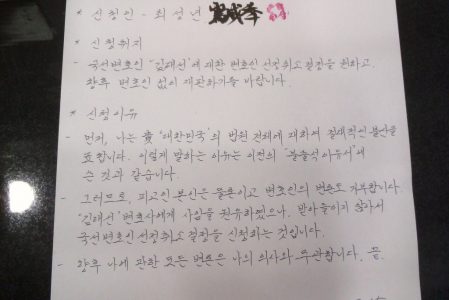 * 신청인 - 최성년
* 신청취지
국선변호인 "김태선"에 대한 변호인 선정취소 결정을 원하고,
향후 변호인 없이 재판하기를 바랍니다.
* 신청이유
- 먼저, 나는 貴 "대한민국"의 법원 전체에 대하여 절대적인 불신을
표합니다. 이렇게 말하는 이유는 이전의 "불출석 이유서"에
쓴 것과 같습니다.
- 그러므로, 피고인 본인은 물론이고 변호인의 변론도 거부합니다.
"김태선" 변호사에게 사임을 권유하였으나, 받아들이지 않아서
국선변호인 선정취소 결정을 신청하는 것입니다.
- 향후 나에 관한 모든 변론은 나의 의사와 무관합니다. 끝.